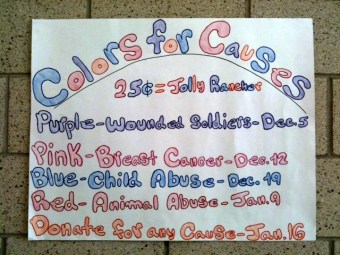 Colors for Causes
25¢ = Jolly Rancher
Purple-Wounded Soldiers-Dec.5
Pink-Breast Cancer-Dec.12
Blue-Child Abuse-Dec. 19
Red-Animal Abuse-Jan.9
Donate for any Cause-Jan.16